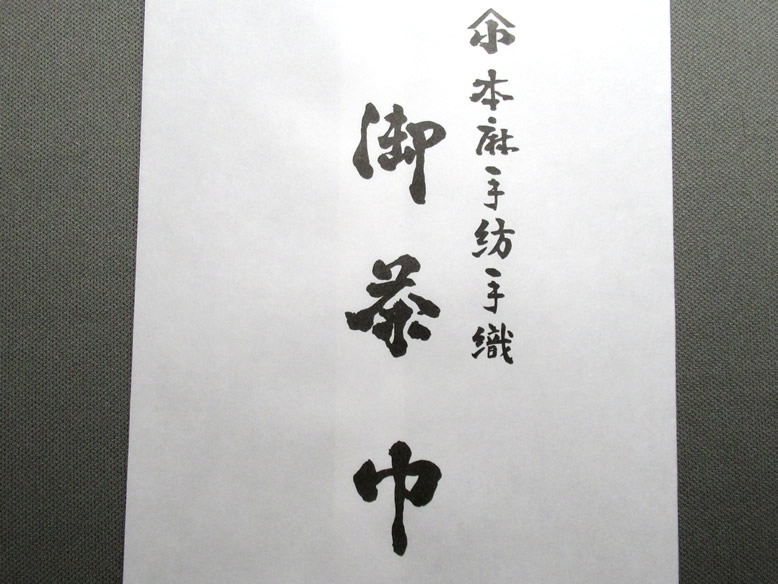 本麻手紡手織
御茶巾